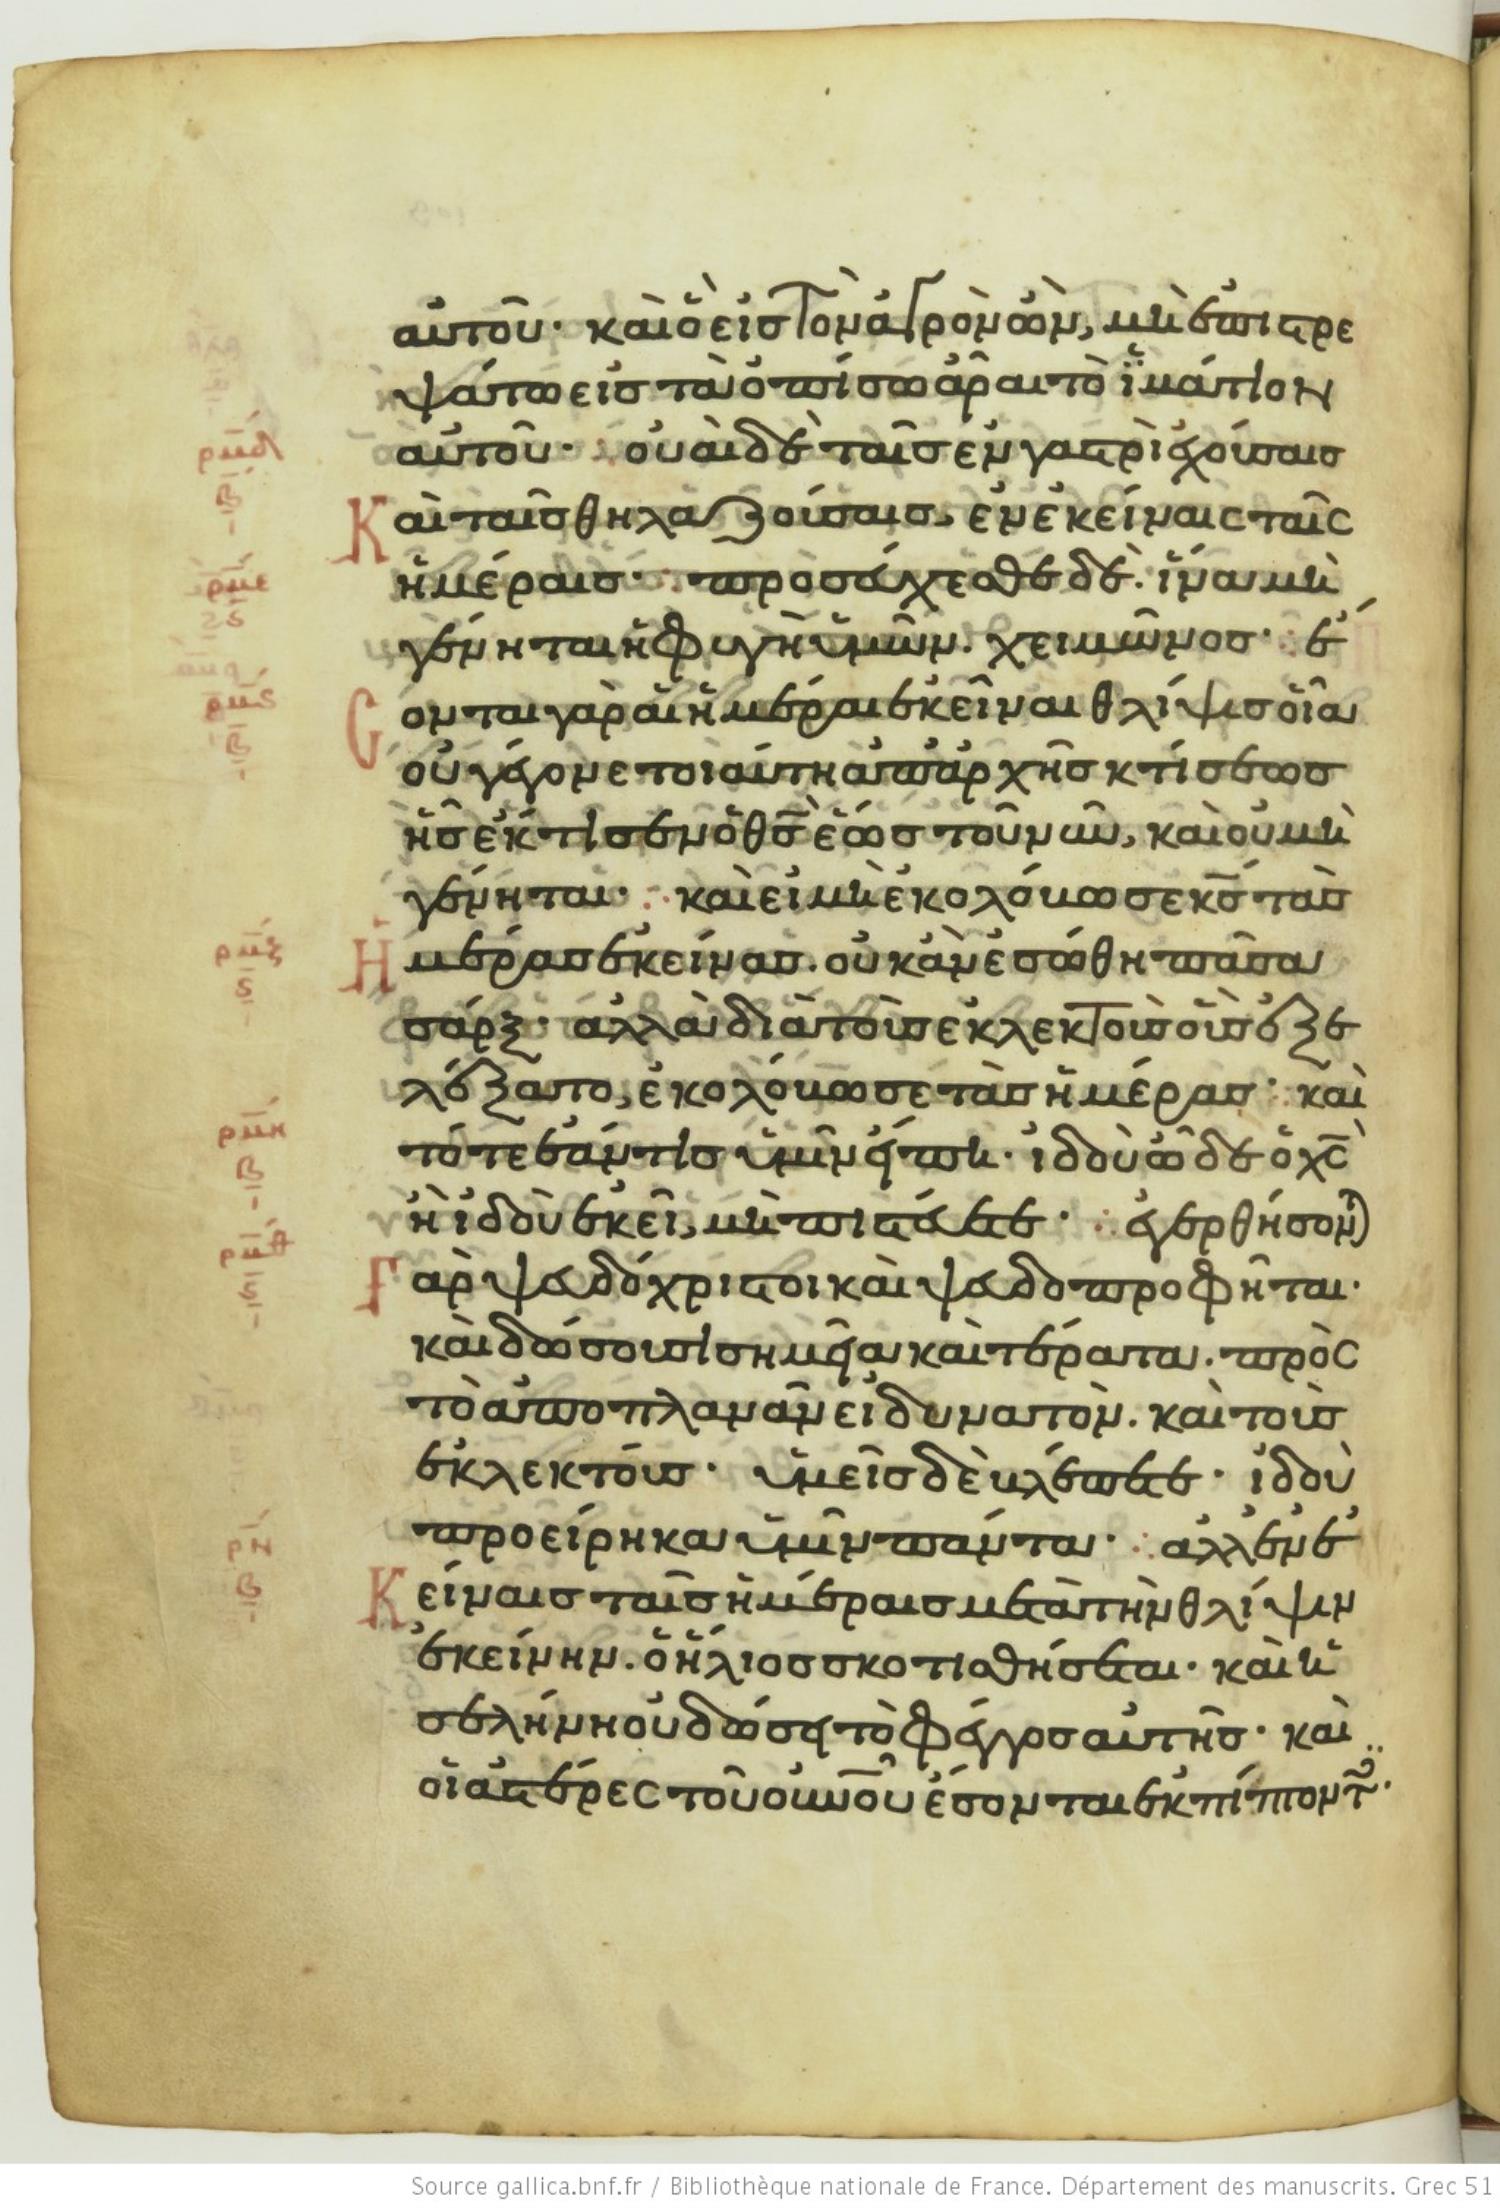 αὐτοῦ· καὶ ὁ εἰς τὸν ἀγρὸν ὢν, μὴ ἐπιστρε
ψάτω εἰς τὰ ὀπίσω ἆραι τὸ ἱμάτιον
ρμδ αὐτοῦ· οὐαὶ δὲ ταῖς ἐν γαστρὶ ἐχούσαις
β Καὶ ταῖς θηλαζούσαις, ἐν ἐκείναις ταῖς
ρμε ἡμέραις· προσεύχεσθε δὲ. ἵνα μὴ
ς γένηται ἡ φυγὴ ὑμῶν. χειμῶνος· ἔ
ρμς Σονται γὰρ αἱ ἡμέραι ἐκεῖναι θλίψις οἵα
β οὐ γέγονε τοιαύτη ἀπαρχῆς κτίσεως
ἧς ἔκτισεν ὁ θς ἕως τοῦ νῦν, καὶ οὐ μὴ
γένηται· καὶ εἰ μὴ ἐκολόβωσε κς τὰς
ρμζ Ἡμέρας ἐκείνας. οὐκ ἂν ἐσώθη πᾶσα
ς σάρξ· ἀλλὰ διὰ τοὺς ἐκλεκτοὺς οὓς ἐξε
λέξατο, ἐκολόβωσε τὰς ἡμέρας· καὶ
ρμη τότε ἐάν τις ὑμῖν εἴπη· ἰδοὺ ὧδε ὁ χς
β ἢ ἰδοὺ ἐκεῖ, μὴ πιστεύετε· ἐγερθήσον
ρμθ Γὰρ ψευδόχριστοι καὶ ψευδοπροφῆται·
ς καὶ δώσουσι σημεῖα καὶ τέρατα. πρὸς
τὸ ἀποπλανᾶν εἰ δυνατὸν. καὶ τοὺς
ἐκλεκτούς· ὑμεῖς δὲ βλέπετε· ἰδοὺ
ρν προείρηκα ὑμῖν πάντα· ἀλλ ἐν ἐ
β Κείναις ταῖς ἡμέραις μετὰ τὴν θλίψιν
ἐκείνην. ὁ ἥλιος σκοτισθήσεται· καὶ ἡ
σελήνη οὐ δώσει τὸ φέγγος αὐτῆς· καὶ
οἱ ἀστέρες τοῦ οὐνοῦ ἔσονται ἐκπίπτοντ·
Source gallica.bnf.fr / Bibliothèque nationale de France. Département des manuscrits. Grec 51